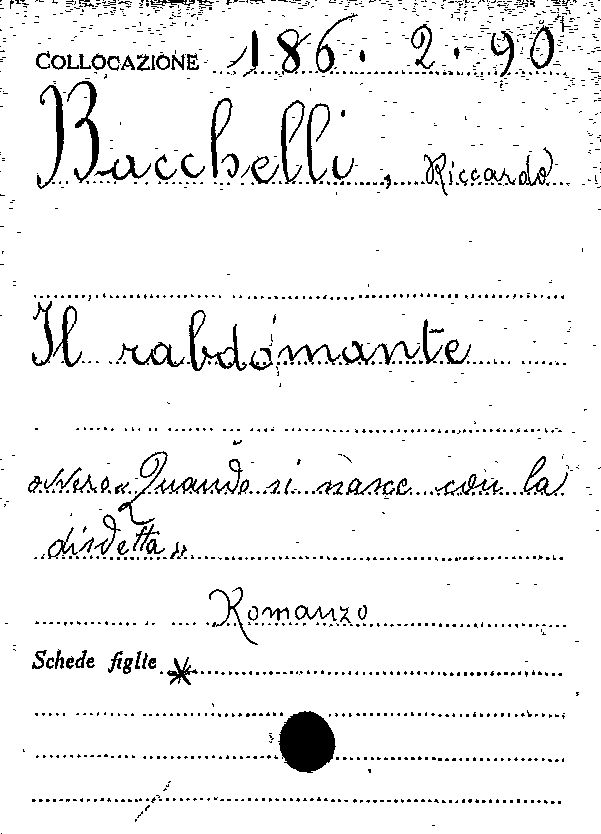 COLLOCAZIONE 186. 2. 90
Bacchelli, Riccardo
Il rabdomante
ovvero «Quando si nasce con la
disdetta»
Romanzo
Schede figlie *